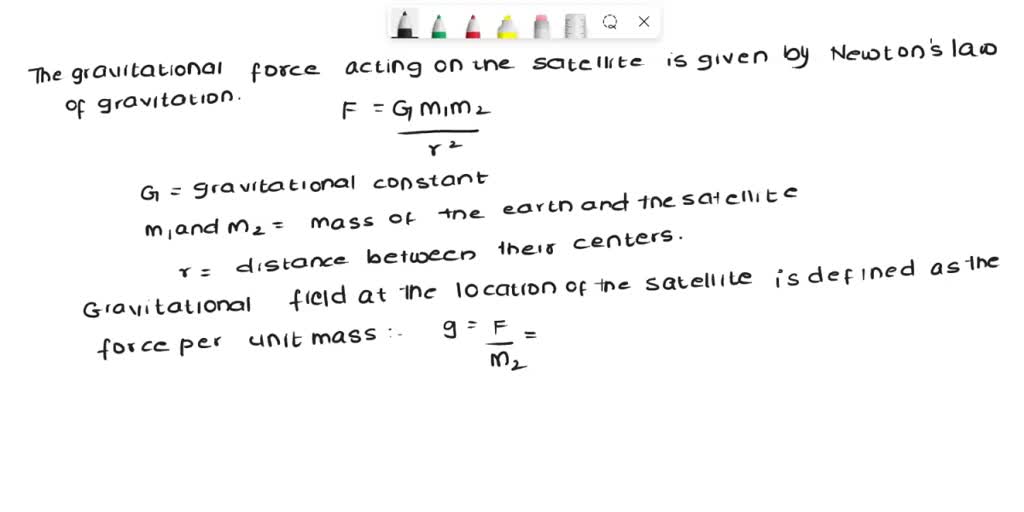 The gravitational force acting on the satellite is given by Newton's law
of gravitation.
F = G m1m2
r²
G = gravitational constant
m1 and m2 = mass of the earth and the satellite
r = distance between their centers.
Gravitational field at the location of the satellite is defined as the
force per unit mass :- g = F =
m2